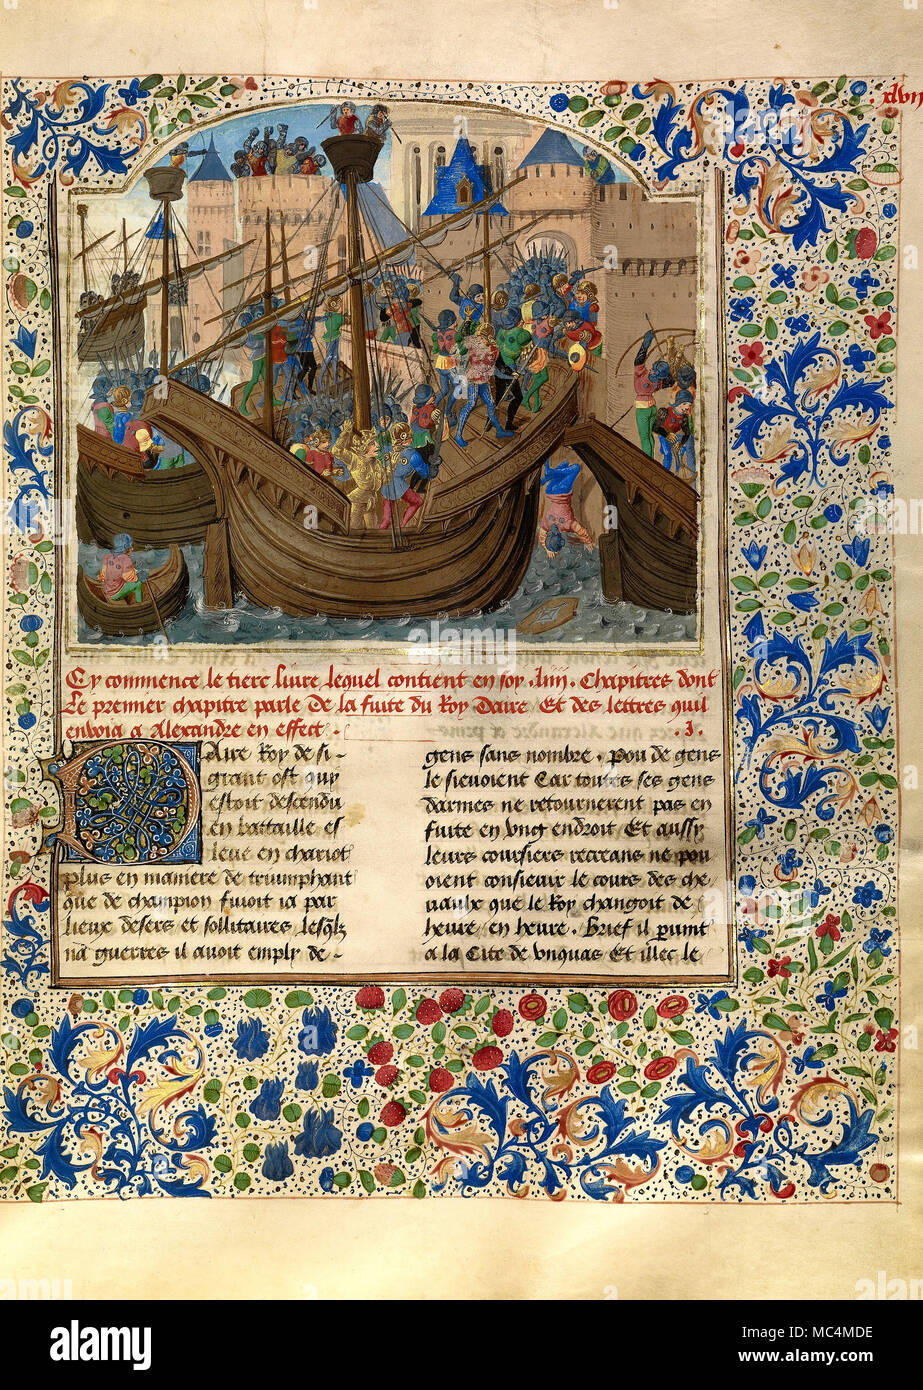 .xlvij
Cy commence le tiers liure lequel contient en soy .liiij. Chapitres dont
Le premier chapitre parle de la fuite du Roy Daire / Et des lettres quil
enuoia a Alexandre en effect . .I.
Daire Roy de si-
grant ost quy
estoit descendu
en battaille es
leue en chariot
plus en maniere de triumphant
que de champion fuioit ia par
lieux desers et sollitaires lesqlz
na guerres il auoit emply de-
gens sans nombre . Pou de gens
le sieuoient Car toutes ses gens
darmes ne retournerent pas en
fuite en vng endroit Et aussy
leurs coursiers recreans ne pou
oient consieuir le cours des che
uaulx que le Roy changoit de
heure / en heure . Brief il paruint
a la Cite de vnquas Et illec le
a alamy stock photo
alamy
Image ID: MC4MDE
www.alamy.com